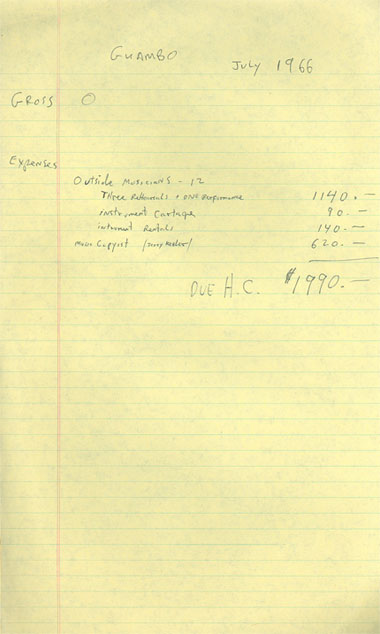 GUAMBO
JULY 1966
GROSS O
Expenses
Outside Musicians - 12
Three Rehearsals + ONE Performance 1140.—
instrument Cartage 90.—
intrument Rentals 140.—
Music Copyist 620.—
DUE H.C. $1990.—